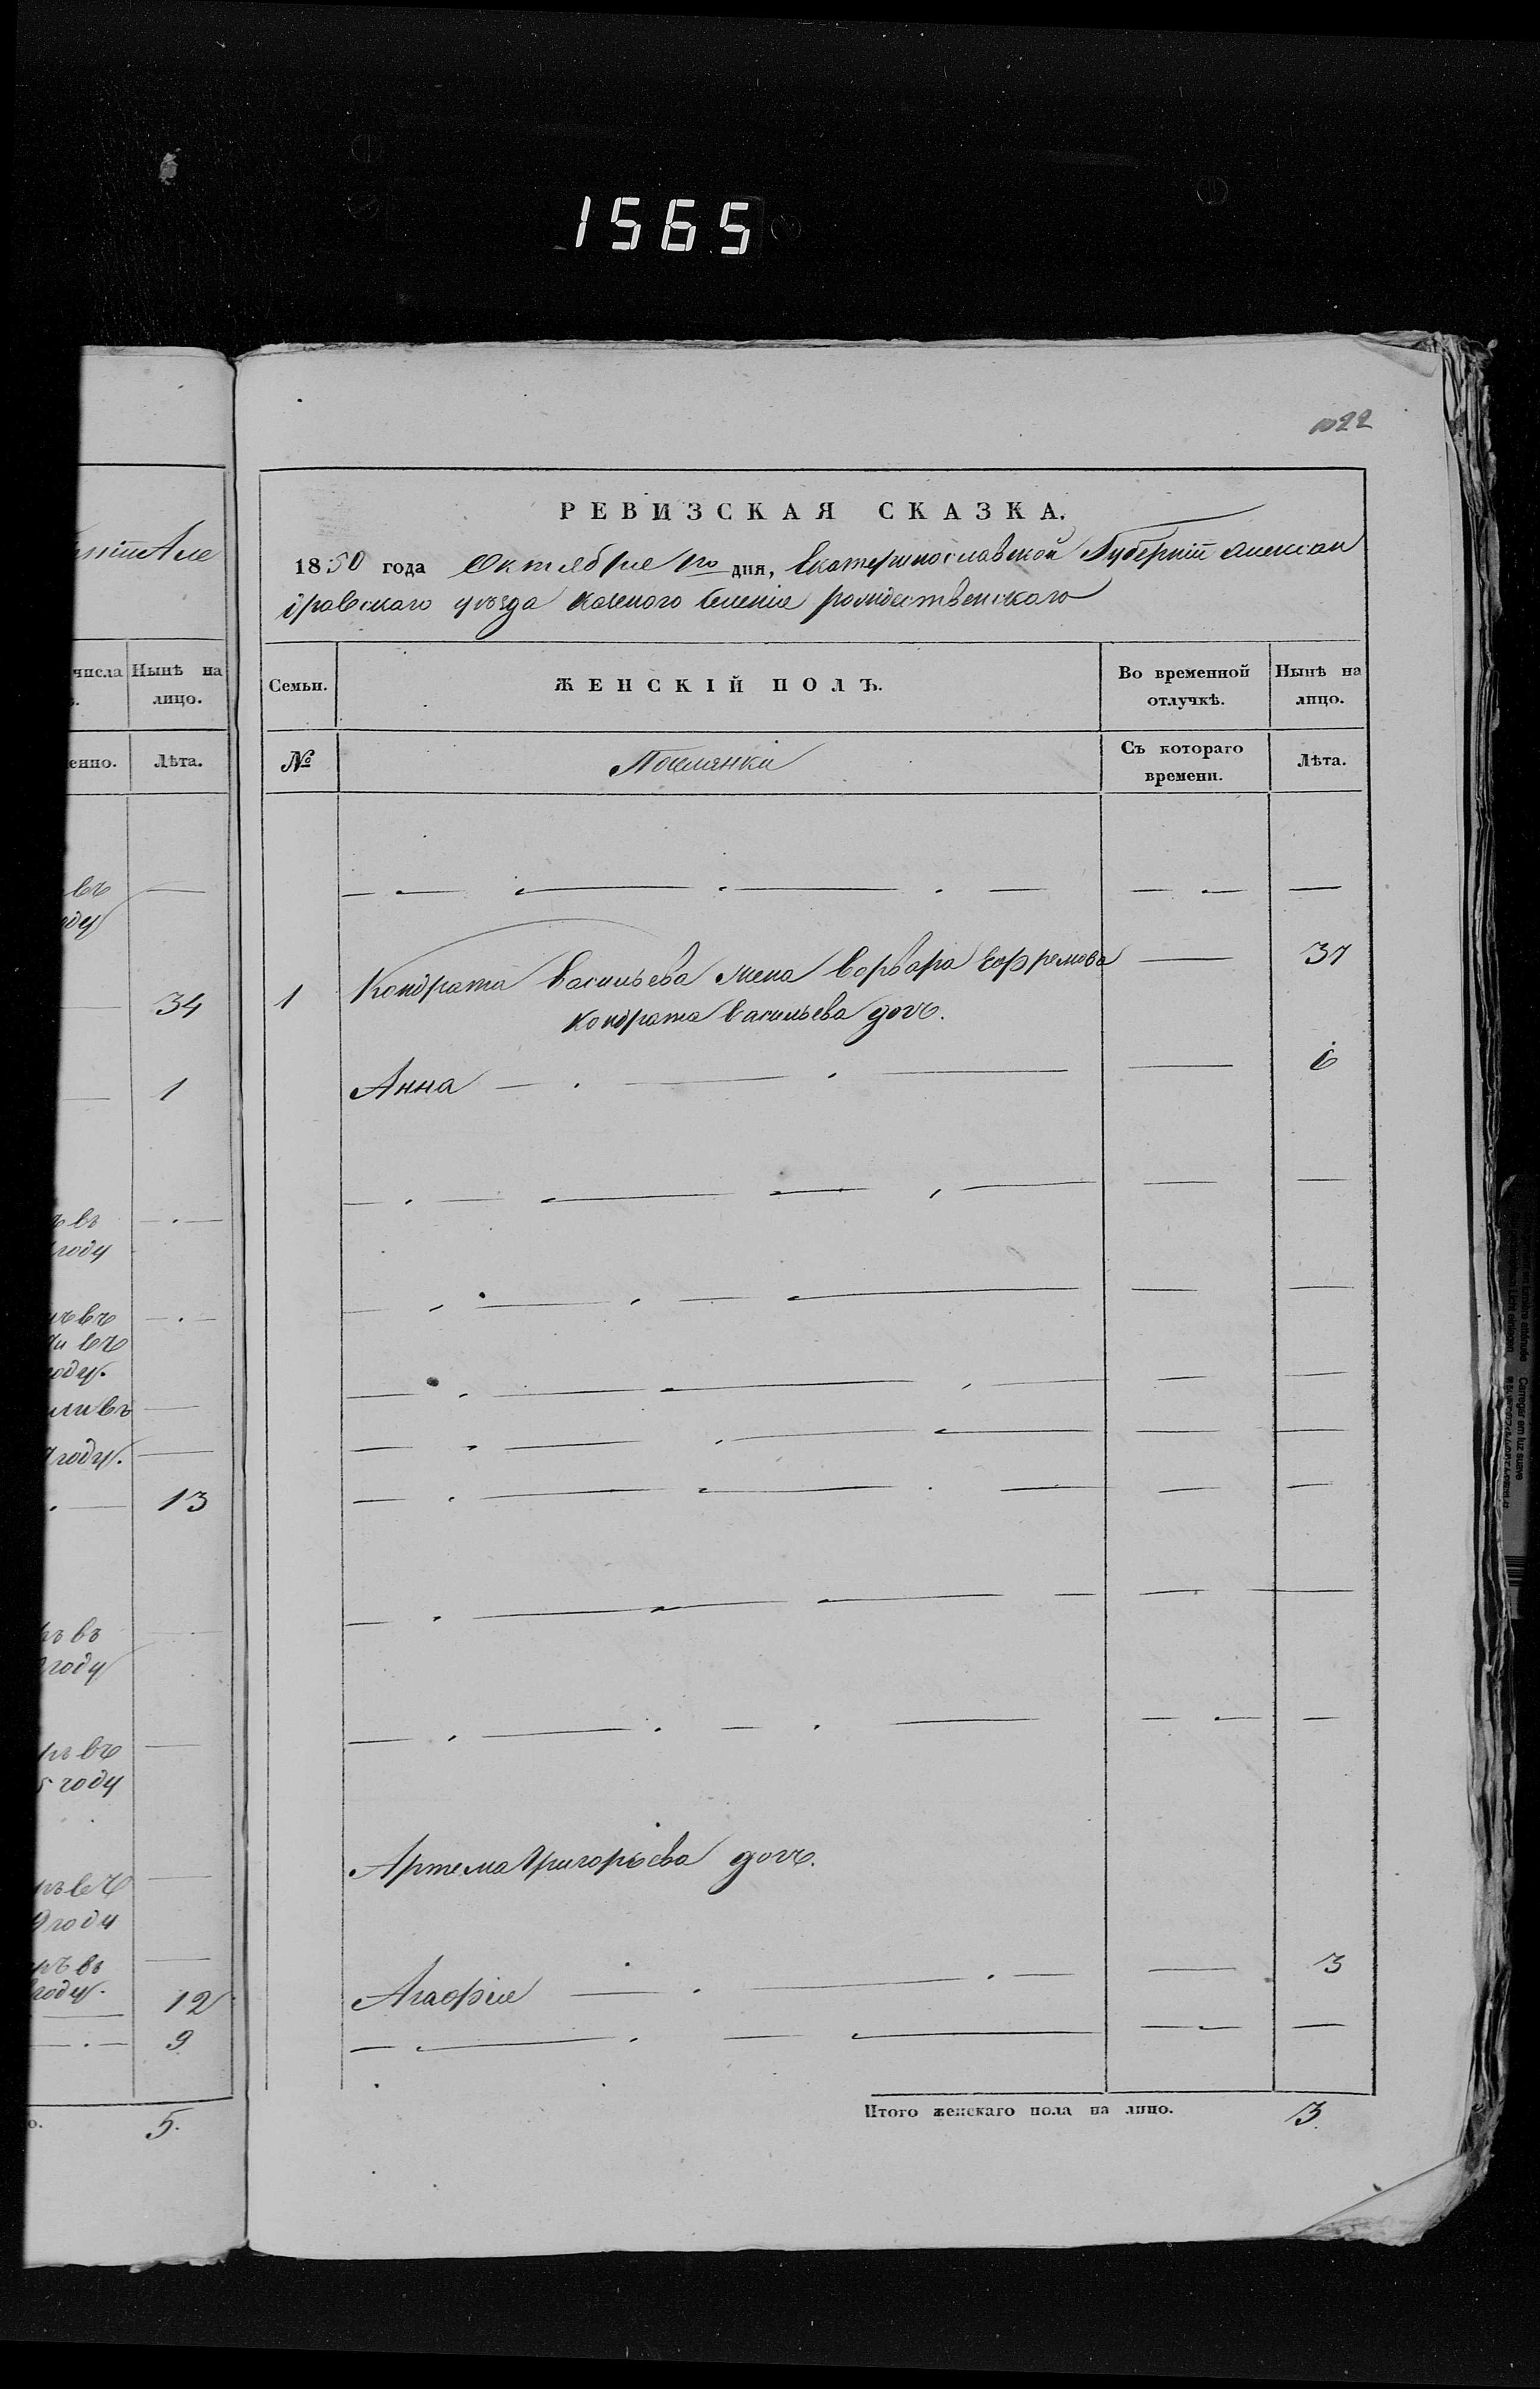 1565
1022
РЕВИЗСКАЯ СКАЗКА.
1850 года Октября 1го дня, Екатеринославской Губерніи Алексан
дровскаго уѣзда казеного селенія рождественскаго
Семьи.
ЖЕНСКІЙ ПОЛЪ.
Во временной отлучкѣ.
Нынѣ на лицо.
№
Поселянки
Съ котораго времени.
Лѣта.
1 Кондрата Васильева жена Варвара Ефремова — 37
Кондрата Васильева дочь.
Анна — 6
Артема Григорьева дочь.
Агафія — 3
Итого женскаго пола на лицо. 3.
числа
Нынѣ на лицо.
енно.
Лѣта.
въ
оду
34
1
въ
году
въ
въ
году.
ливъ
году.
13
въ
году
ръ въ
5 году
ръ въ
9 году
ръ въ
году.
12
9
о. 5.